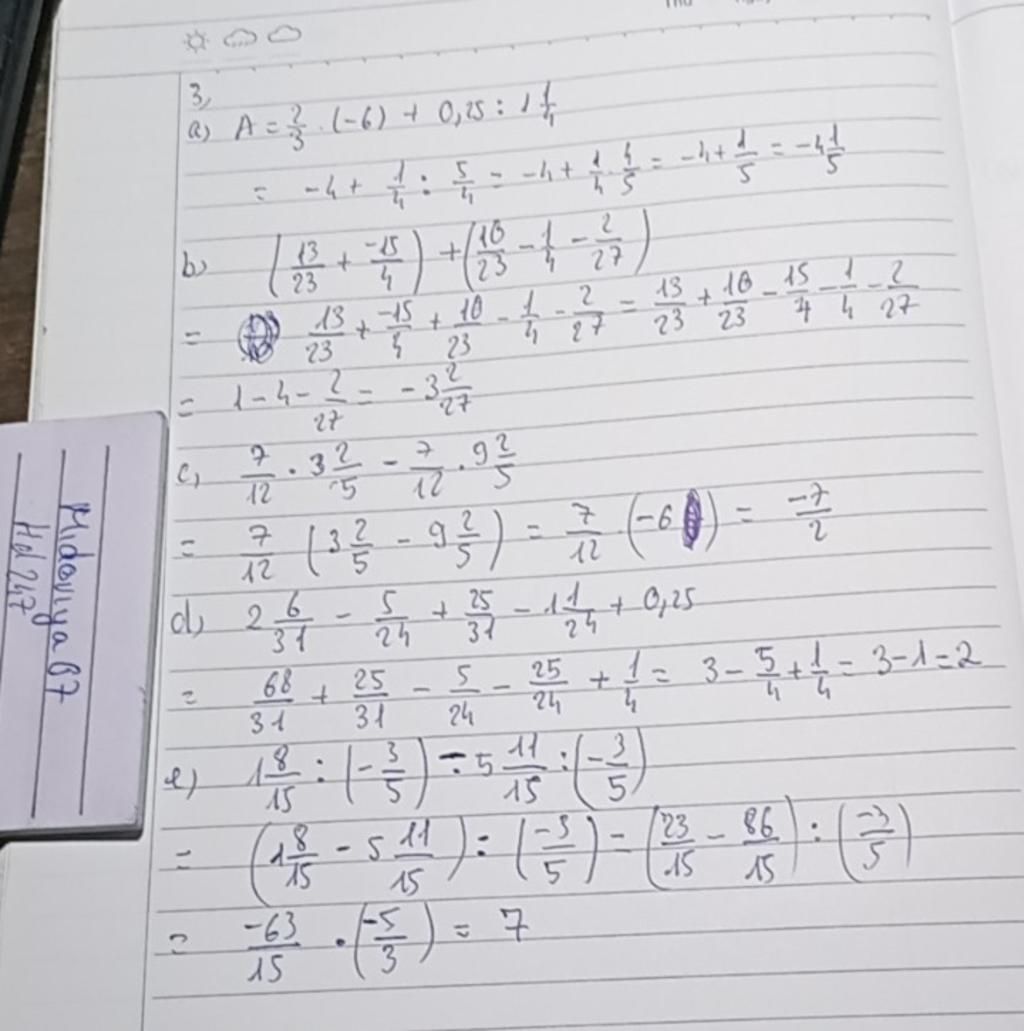 3,
a) A = 2/3 . (-6) + 0,25 : 1 1/4
= -4 + 1/4 : 5/4 = -4 + 1/4 . 4/5 = -4 + 1/5 = -4 1/5
b) (13/23 + -15/4) + (10/23 - 1/4 - 2/27)
= 13/23 + -15/4 + 10/23 - 1/4 - 2/27 = 13/23 + 10/23 - 15/4 - 1/4 - 2/27
= 1 - 4 - 2/27 = -3 2/27
c, 7/12 . 3 2/5 - 7/12 . 9 2/5
= 7/12 (3 2/5 - 9 2/5) = 7/12 . (-6) = -7/2
d) 2 6/31 - 5/24 + 25/31 - 1 1/24 + 0,25
= 68/31 + 25/31 - 5/24 - 25/24 + 1/4 = 3 - 5/4 + 1/4 = 3 - 1 = 2
e) 1 8/15 : (-3/5) - 5 11/15 : (-3/5)
= (1 8/15 - 5 11/15) : (-3/5) = (23/15 - 86/15) : (-3/5)
= -63/15 . (-5/3) = 7
Hd 247